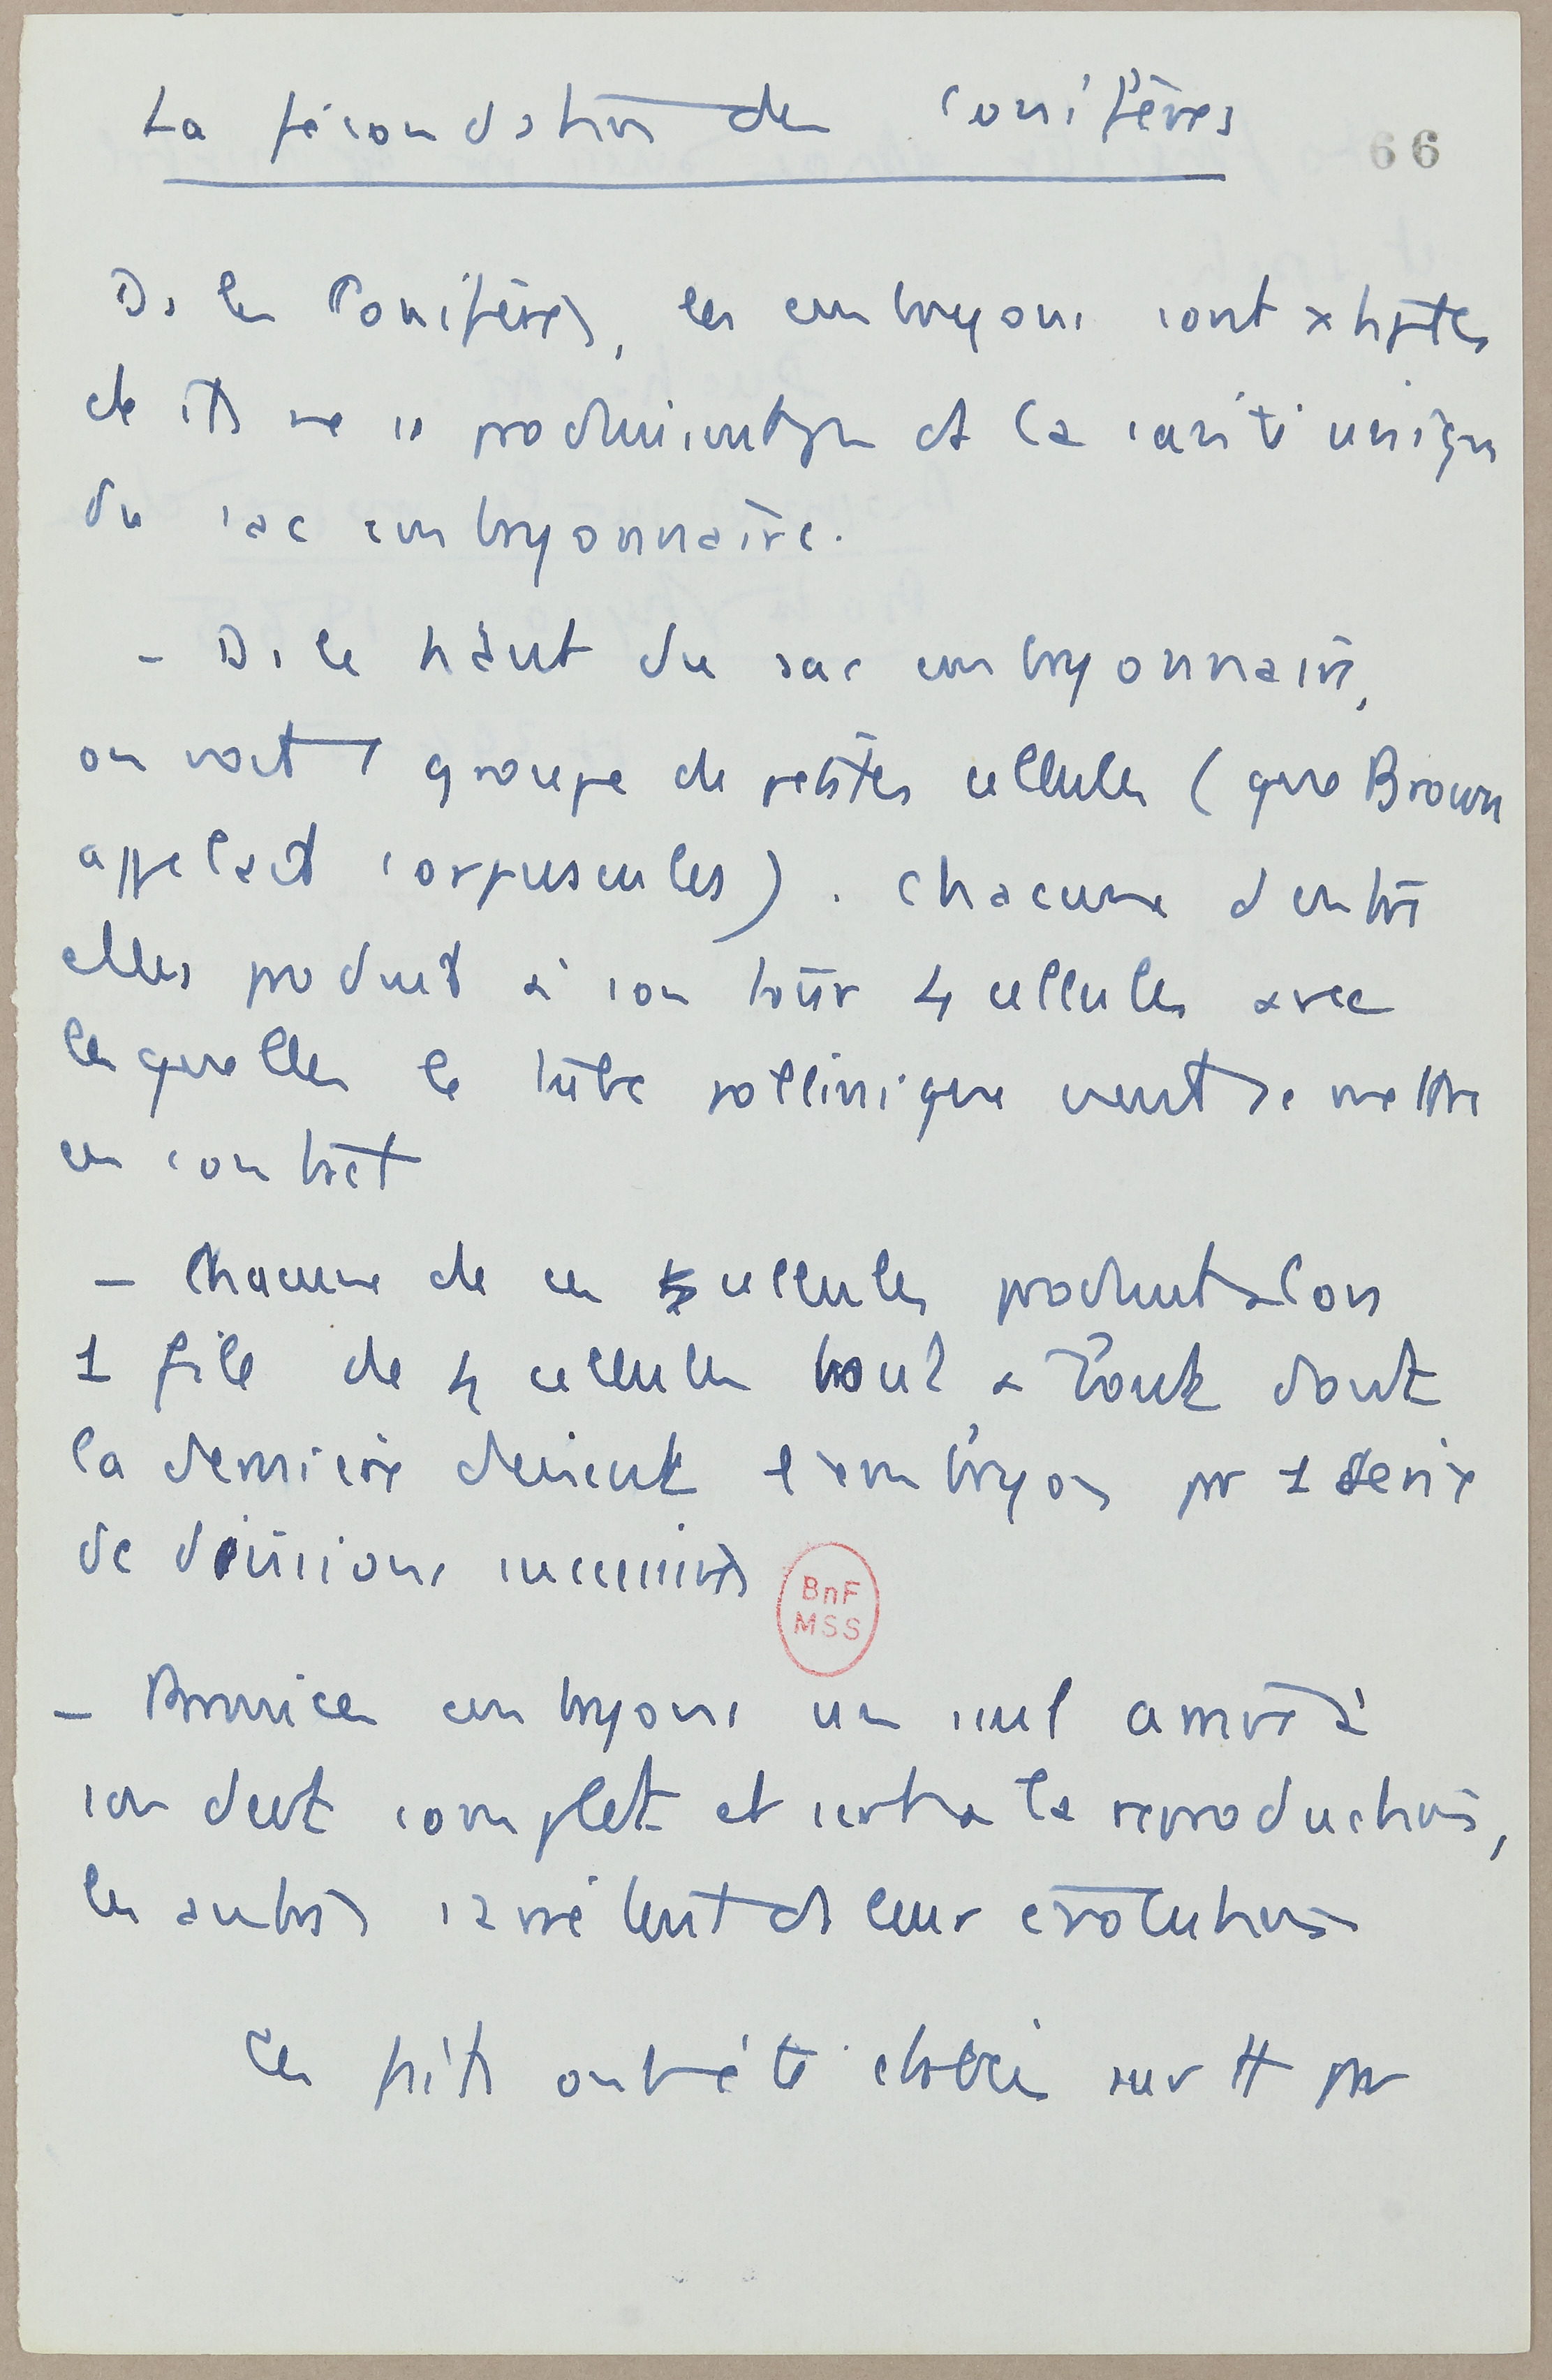 La fécondation des conifères
66
Ds les Conifères, les embryons sont multiples
de ils ne se produisent que ds la cavité unique
du sac embryonnaire.
- Ds le haut du sac embryonnaire,
on voit 1 groupe de petites cellules (que Brown
appelait corpuscules). Chacune d'entre
elles produit à son tour 4 cellules avec
lesquelles le tube pollinique vient se mettre
en contact
- Chacune de ces cellules produit alors
1 file de 4 cellules bout à bout dont
la dernière devient l'embryon par 1 série
de divisions successives
BnF
MSS
- Parmi ces embryons un seul arrive à
son dvt complet et sert à la reproduction,
les autres s'arrêtent ds leur évolution
Ces faits ont été établis sur tt par